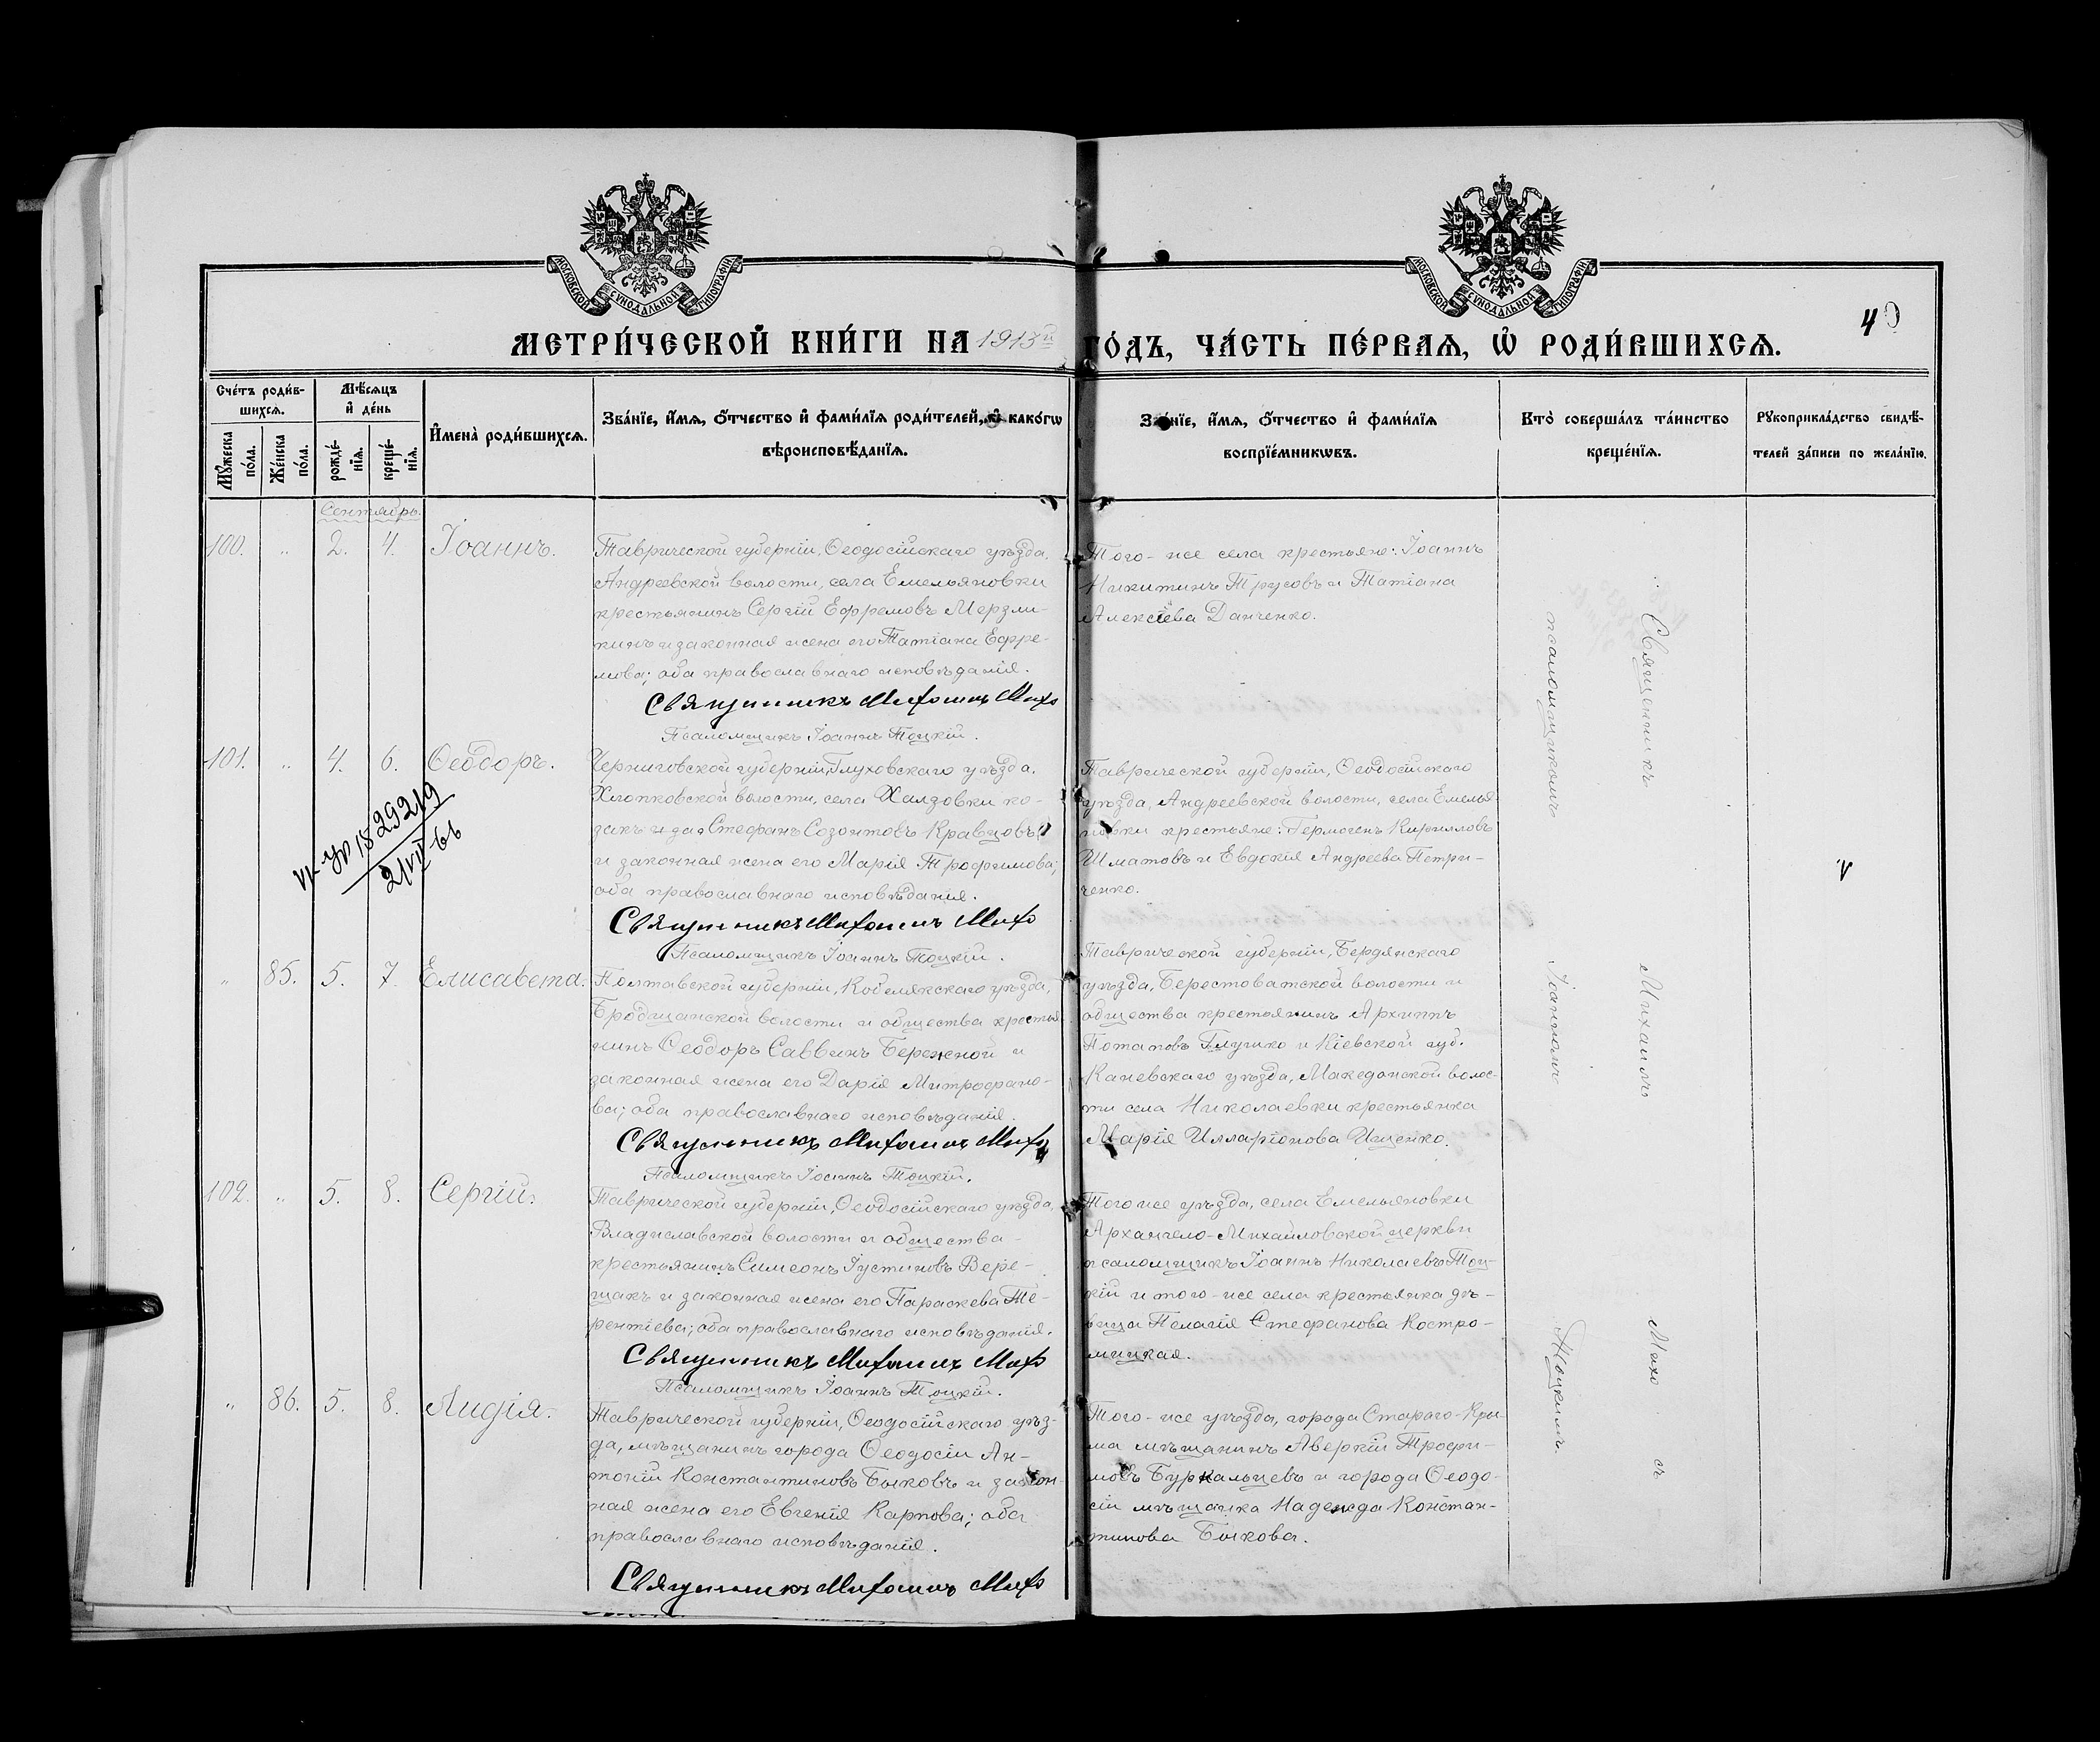 МОСКОВСКОЙ СѴНОДАЛЬНОЙ ТИПОГРАФІИ
МОСКОВСКОЙ СѴНОДАЛЬНОЙ ТИПОГРАФІИ
МЕТРИ́ЧЕСКОЙ КНИ́ГИ НА 1913й ГО́ДЪ, ЧА́СТЬ ПЕ́РВАѦ, Ѡ҆ РОДИ́ВШИХСѦ.
40
Сче́тъ роди́в-
шихсѧ.
Мѣ́сѧцъ
и҆ де́нь
Мꙋ́жеска по́ла.
Же́нска по́ла.
рожде́-
нїѧ.
креще́-
нїѧ.
И҆мена̀ роди́вшихсѧ.
Зва́нїе, и҆́мѧ, ѻ҆́тчество и҆ фами́лїѧ роди́телей, и҆ како́гѡ
вѣроисповѣ́данїѧ.
Зва́нїе, и҆́мѧ, ѻ҆́тчество и҆ фами́лїѧ
воспрїе́мникѡвъ.
Кто̀ соверша́лъ та́инство
креще́нїѧ.
Рꙋкоприкла́дство свидѣ́-
телей за́писи по жела́нїю.
Сентябрь.
100. „ 2. 4. Іоаннъ.
Таврической губерніи, Ѳеодосійскаго уѣзда,
Андреевской волости, села Емельяновки
крестьянинъ Сергій Ефремовъ Мерзли-
кинъ и законная жена его Татіана Ефре-
мова; оба православнаго исповѣданія.
Священникъ Михаилъ Михо
Псаломщикъ Іоаннъ Тоцкій.
Того-же села крестьяне: Іоаннъ
Никитинъ Трусовъ и Татіана
Алексіева Данченко.
101. „ 4. 6. Ѳеодоръ.
Черниговской губерніи, Глуховскаго уѣзда,
Хлопковской волости, села Халзовки ко-
закъ Стефанъ Созонтовъ Кравцовъ
и законная жена его Марія Трофимова;
оба православнаго исповѣданія.
Священникъ Михаилъ Михо
Псаломщикъ Іоаннъ Тоцкій.
1829219
2/VII-66
Таврической губерніи, Ѳеодосійскаго
уѣзда, Андреевской волости, села Емелья
новки крестьяне: Гермогенъ Кирилловъ
Шматовъ и Евдокія Андреева Петри-
ченко.
V
„ 85. 5. 7. Елисавета.
Полтавской губерніи, Кобелякскаго уѣзда,
Бродщанской волости и общества крестья
нинъ Ѳеодоръ Саввинъ Бережной и
законная жена его Дарія Митрофано-
ва; оба православнаго исповѣданія.
Священникъ Михаилъ Михо
Псаломщикъ Іоаннъ Тоцкій.
Таврической губерніи, Бердянскаго
уѣзда, Берестоватской волости и
общества крестьянинъ Архиппъ
Потаповъ Глушко и Кіевской губ.
Каневскаго уѣзда, Македонской волос-
ти села Николаевки крестьянка
Марія Илларіонова Ищенко.
102. „ 5. 8. Сергій.
Таврической губерніи, Ѳеодосійскаго уѣзда,
Владиславской волости и общества
крестьянинъ Симеонъ Іустиновъ Вере-
щакъ и законная жена его Параскева Те-
рентіева; оба православнаго исповѣданія.
Священникъ Михаилъ Михо
Псаломщикъ Іоаннъ Тоцкій.
Того же уѣзда, села Емельяновки
Архангело-Михайловской церкви
псаломщикъ Іоаннъ Николаевъ Тоц-
кій и того-же села крестьянка дѣ-
вица Пелагія Стефанова Костро-
мицкая.
„ 86. 5. 8. Лидія.
Таврической губерніи, Ѳеодосійскаго уѣз-
да, мѣщанинъ города Ѳеодосіи Ан-
тоній Константиновъ Быковъ и закон-
ная жена его Евгенія Карпова; оба
православнаго исповѣданія.
Священникъ Михаилъ Михо
Того-же уѣзда, города Стараго-Кры-
ма мѣщанинъ Аверкій Трофи-
мовъ Буркальцевъ и города Ѳеодо-
сіи мѣщанка Надежда Констан-
тинова Быкова.
Священникъ Михаилъ Михо съ
псаломщикомъ Іоанномъ Тоцкимъ.